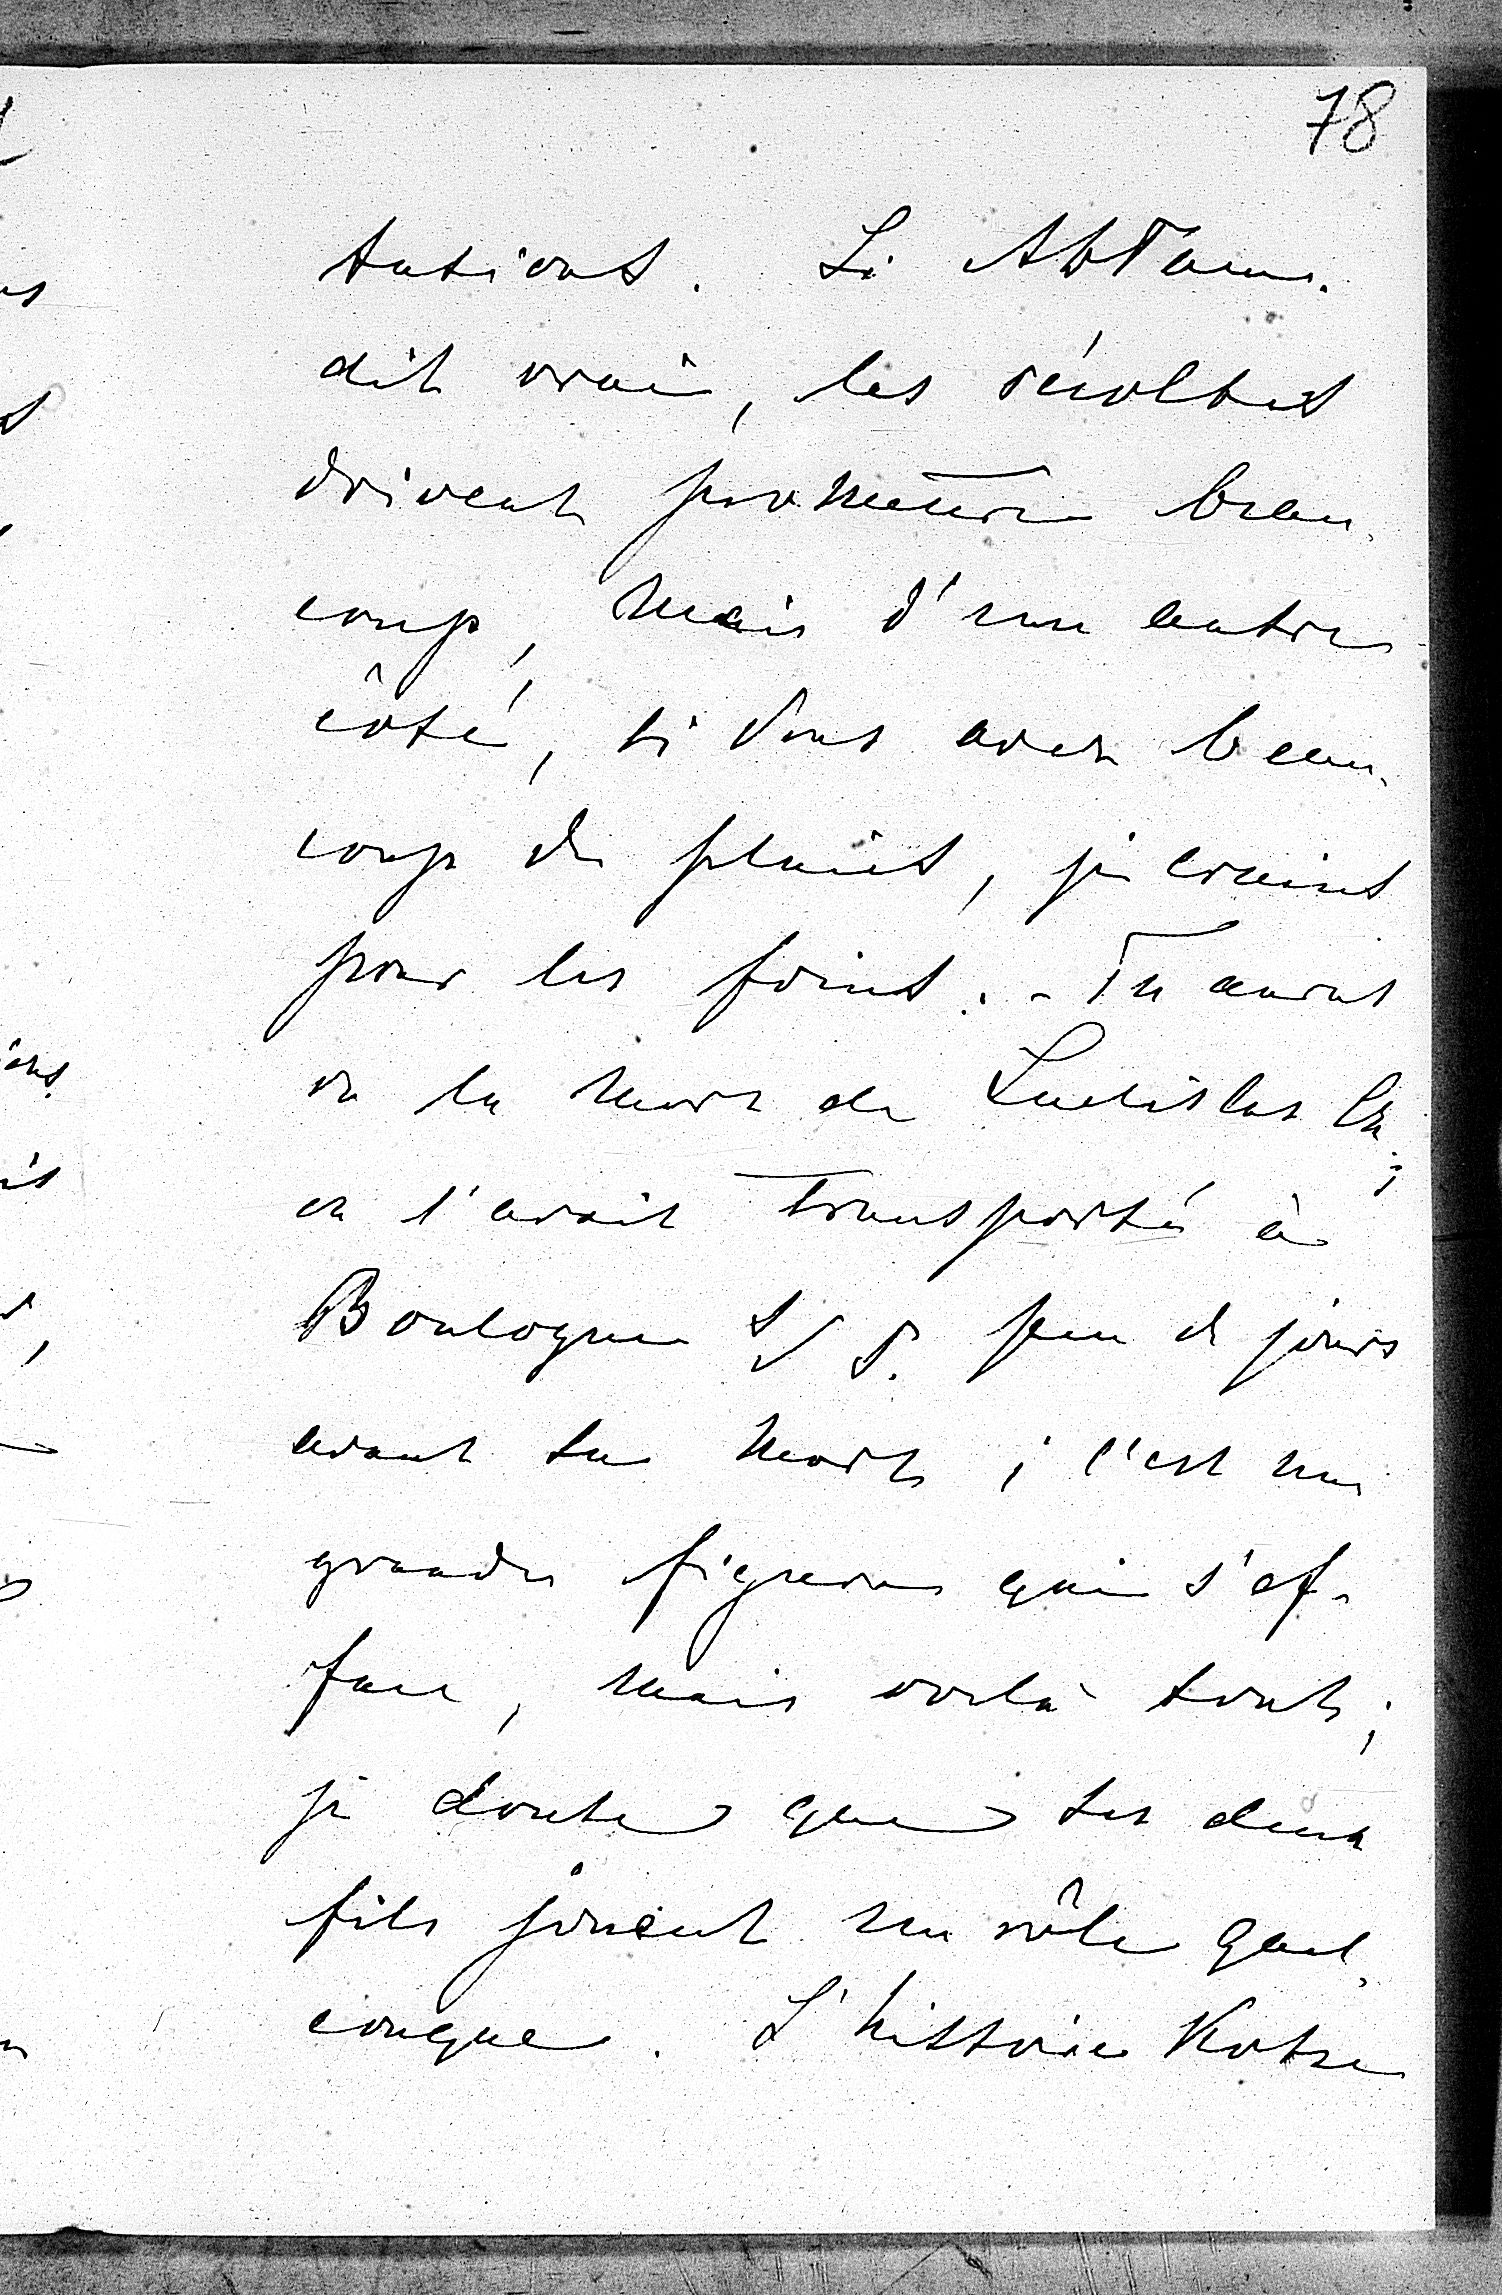 78
tations. Si
dit vrai, les récoltes
doivent promettre beau-
coup, mais d'un autre
côté, si vous avez beau-
coup de pluies, je crains
pour les foins. - Tu auras
vu la mort de Ladislas Cz;
on l'avait transporté à
Boulogne s/S. peu de jours
avant sa mort; c'est une
grande figure qui s'ef-
face, mais voilà tout;
je doute que ses deux
fils jouent un rôle quel-
conque. L'histoire Kotze